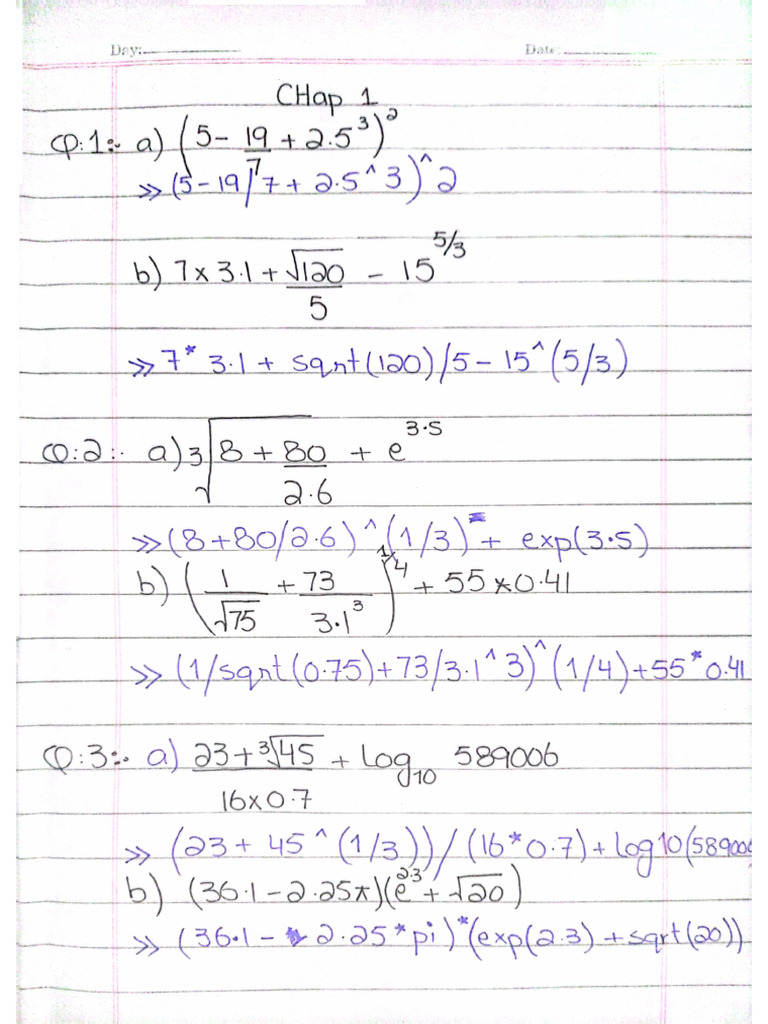 Day:
Date:
CHap 1
Q:1:- a) (5 - 19/7 + 2.5³)²
>> (5-19/7+2.5^3)^2
b) 7 x 3.1 + √120/5 - 15^5/3
>> 7*3.1+ sqrt(120)/5-15^(5/3)
Q:2:- a) 3√8 + 80/2.6 + e^3.5
>> (8+80/2.6)^(1/3) + exp(3.5)
b) (1/√75 + 73/3.1³)^1/4 + 55x0.41
>> (1/sqrt(0.75)+73/3.1^3)^(1/4)+55*0.41
Q:3:- a) 23+³√45/16x0.7 + log₁₀ 589006
>> (23+ 45^(1/3))/(16*0.7)+log10(589006
b) (36.1-2.25π)(e^2.3+√20)
>> (36.1- 2.25*pi)*(exp(2.3)+sqrt(20))